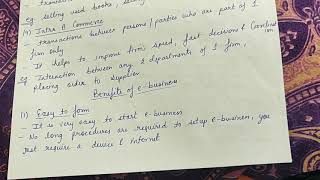 selling used books,
(4) Intra B Commerce
- transactions between persons / parties who are part of 1
firm only
- It helps to improve firm speed, fast decisions &
eg Interaction between any 2 departments of 1 firm,
placing order to supplier
Benefits of e-business
(1) Easy to form
- It is very easy to start e-business
- No long procedures are required to setup e-business, you
just require a device & internet